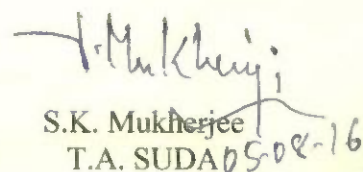 S.K. Mukherjee
T.A. SUDA 05-08-16